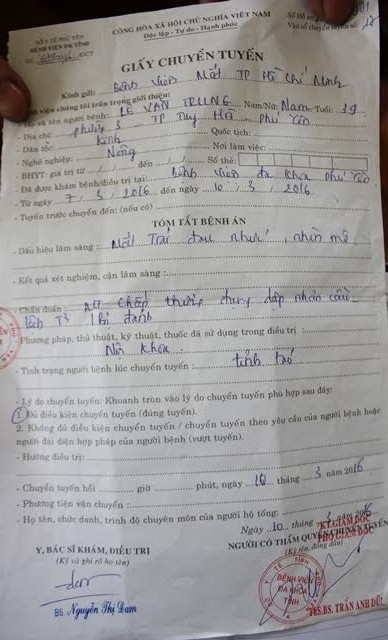 SỞ Y TẾ PHÚ YÊN
BỆNH VIỆN ĐK TỈNH
CỘNG HÒA XÃ HỘI CHỦ NGHĨA VIỆT NAM
Độc lập - Tự do - Hạnh phúc
Số Hồ sơ
Vào sổ chuyển tuyến số
GIẤY CHUYỂN TUYẾN
Kính gửi: Bệnh Viện Mắt TP Hồ Chí Minh
viện chúng tôi trân trọng giới thiệu:
Họ và tên người bệnh: LÊ VĂN TRUNG Nam/Nữ: Nam Tuổi: 19
- Địa chỉ: phường 3 - TP Tuy Hòa - Phú Yên
- Dân tộc: Kinh Quốc tịch:
- Nghề nghiệp: Nông Nơi làm việc:
- BHYT: giá trị từ / đến / / Số thẻ:
- Đã được khám bệnh/điều trị tại: Bệnh viện đa khoa Phú Yên
- Từ ngày 7 . 3 / 2016 đến ngày 10 . 3 / 2016
- Tuyến trước chuyển đến: (nếu có)
TÓM TẮT BỆNH ÁN
- Dấu hiệu lâm sàng: Mắt Trái đau nhức, nhìn mờ
- Kết quả xét nghiệm, cận lâm sàng:
- Chẩn đoán: MT Chấp thương đụng dập nhãn cầu
bị đánh
- Phương pháp, thủ thuật, kỹ thuật, thuốc đã sử dụng trong điều trị:
Nội khoa
- Tình trạng người bệnh lúc chuyển tuyến: tỉnh táo
- Lý do chuyển tuyến: Khoanh tròn vào lý do chuyển tuyến phù hợp sau đây:
1. Đủ điều kiện chuyển tuyến (đúng tuyến).
2. Không đủ điều kiện chuyển tuyến / chuyển tuyến theo yêu cầu của người bệnh hoặc
người đại diện hợp pháp của người bệnh (vượt tuyến).
- Hướng điều trị:
- Chuyển tuyến hồi giờ phút, ngày 10 tháng 3 năm 2016
- Phương tiện vận chuyển:
- Họ tên, chức danh, trình độ chuyên môn của người hộ tống:
Ngày 10 tháng 3 năm 2016
Y, BÁC SĨ KHÁM, ĐIỀU TRỊ
(Ký và ghi rõ họ tên)
NGƯỜI CÓ THẨM QUYỀN CHUYỂN TUYẾN
(Ký tên, đóng dấu)
KT.GIÁM ĐỐC
PHÓ GIÁM ĐỐC
BỆNH VIỆN
ĐA KHOA
TỈNH
BS. Nguyễn Thị Đam
BS. TRẦN ANH DŨ